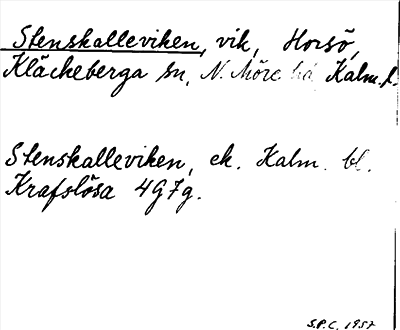 Stenskalleviken, vik, Horsö,
Kläckeberga sn, N. Möre hd, Kalm. l.
Stenskalleviken, ek. Kalm. bl.
Krafslösa 4G7g.
S.P.C. 1957